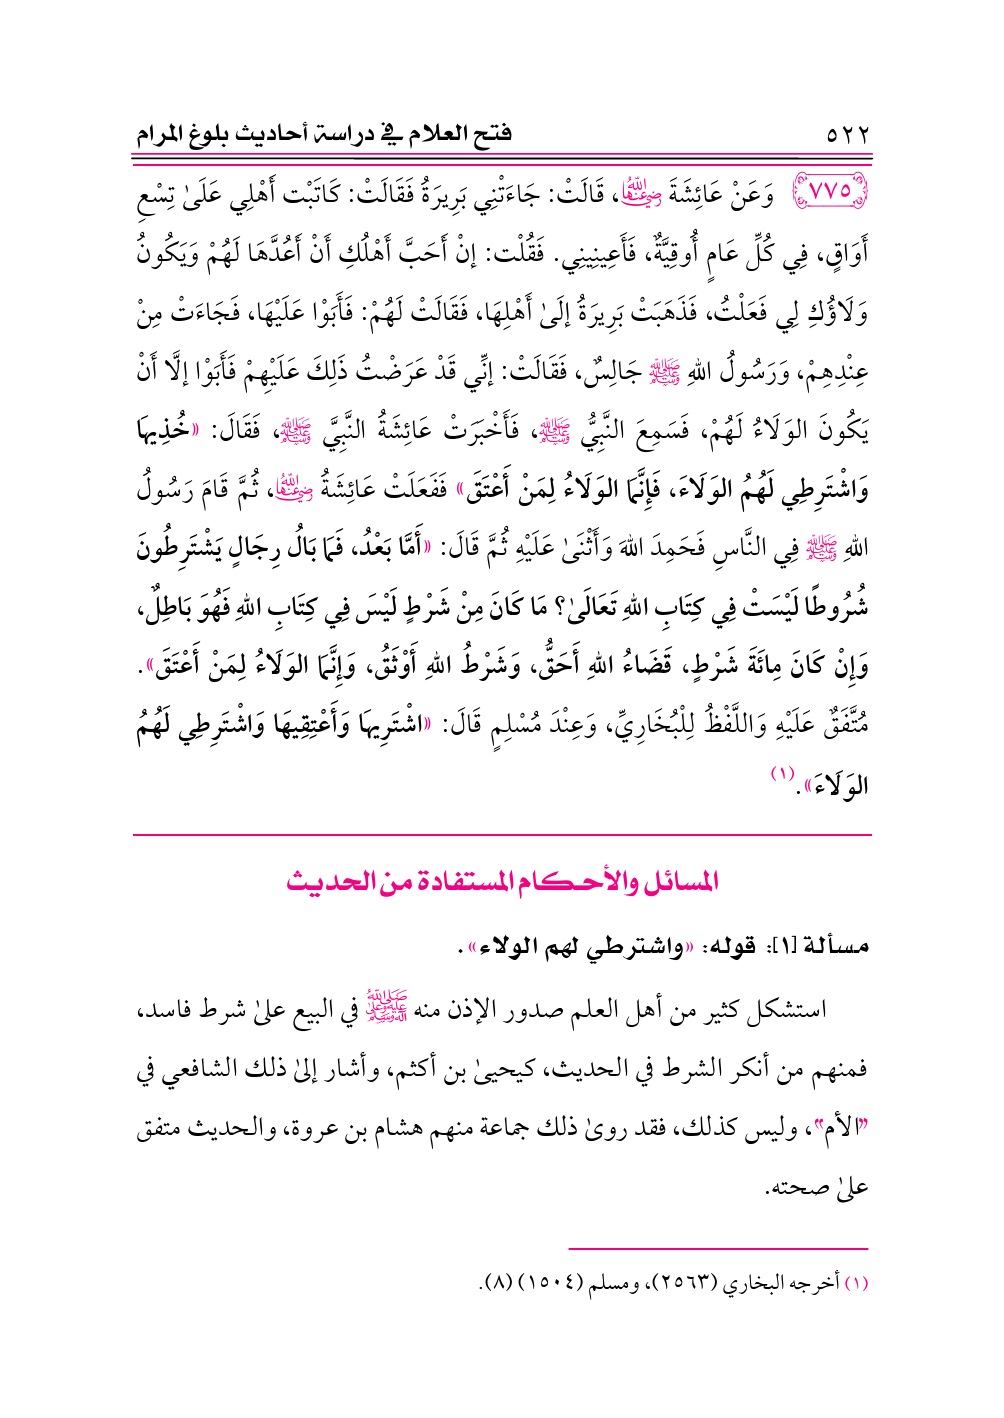 ٥٢٢ فتح العلام في دراسة أحاديث بلوغ المرام
٧٧٥ وَعَنْ عَائِشَةَ رضي الله عنها، قَالَتْ: جَاءَتْنِي بَرِيرَةُ فَقَالَتْ: كَاتَبْت أَهْلِي عَلَىٰ تِسْعِ
أَوَاقٍ، فِي كُلِّ عَامٍ أُوقِيَّةٌ، فَأَعِينِينِي. فَقُلْت: إنْ أَحَبَّ أَهْلُكِ أَنْ أَعُدَّهَا لَهُمْ وَيَكُونُ
وَلَاؤُكِ لِي فَعَلْتُ، فَذَهَبَتْ بَرِيرَةُ إلَىٰ أَهْلِهَا، فَقَالَتْ لَهُمْ: فَأَبَوْا عَلَيْهَا، فَجَاءَتْ مِنْ
عِنْدِهِمْ، وَرَسُولُ اللهِ ﷺ جَالِسٌ، فَقَالَتْ: إنِّي قَدْ عَرَضْتُ ذَلِكَ عَلَيْهِمْ فَأَبَوْا إلَّا أَنْ
يَكُونَ الوَلَاءُ لَهُمْ، فَسَمِعَ النَّبِيُّ ﷺ، فَأَخْبَرَتْ عَائِشَةُ النَّبِيَّ ﷺ، فَقَالَ: «خُذِيهَا
وَاشْتَرِطِي لَهُمُ الوَلَاءَ، فَإِنَّمَا الوَلَاءُ لِمَنْ أَعْتَقَ» فَفَعَلَتْ عَائِشَةُ رضي الله عنها، ثُمَّ قَامَ رَسُولُ
اللهِ ﷺ فِي النَّاسِ فَحَمِدَ اللهَ وَأَثْنَىٰ عَلَيْهِ ثُمَّ قَالَ: «أَمَّا بَعْدُ، فَمَا بَالُ رِجَالٍ يَشْتَرِطُونَ
شُرُوطًا لَيْسَتْ فِي كِتَابِ اللهِ تَعَالَىٰ؟ مَا كَانَ مِنْ شَرْطٍ لَيْسَ فِي كِتَابِ اللهِ فَهُوَ بَاطِلٌ،
وَإِنْ كَانَ مِائَةَ شَرْطٍ، قَضَاءُ اللهِ أَحَقُّ، وَشَرْطُ اللهِ أَوْثَقُ، وَإِنَّمَا الوَلَاءُ لِمَنْ أَعْتَقَ».
مُتَّفَقٌ عَلَيْهِ وَاللَّفْظُ لِلْبُخَارِيِّ، وَعِنْدَ مُسْلِمٍ قَالَ: «اشْتَرِيهَا وَأَعْتِقِيهَا وَاشْتَرِطِي لَهُمُ
الوَلَاءَ».(١)
المسائل والأحكام المستفادة من الحديث
مسألة [١]: قوله: «واشترطي لهم الولاء».
استشكل كثير من أهل العلم صدور الإذن منه صلى الله عليه وعلى آله وسلم في البيع علىٰ شرط فاسد،
فمنهم من أنكر الشرط في الحديث، كيحيىٰ بن أكثم، وأشار إلىٰ ذلك الشافعي في
"الأم"، وليس كذلك، فقد روىٰ ذلك جماعة منهم هشام بن عروة، والحديث متفق
علىٰ صحته.
(١) أخرجه البخاري (٢٥٦٣)، ومسلم (١٥٠٤) (٨).